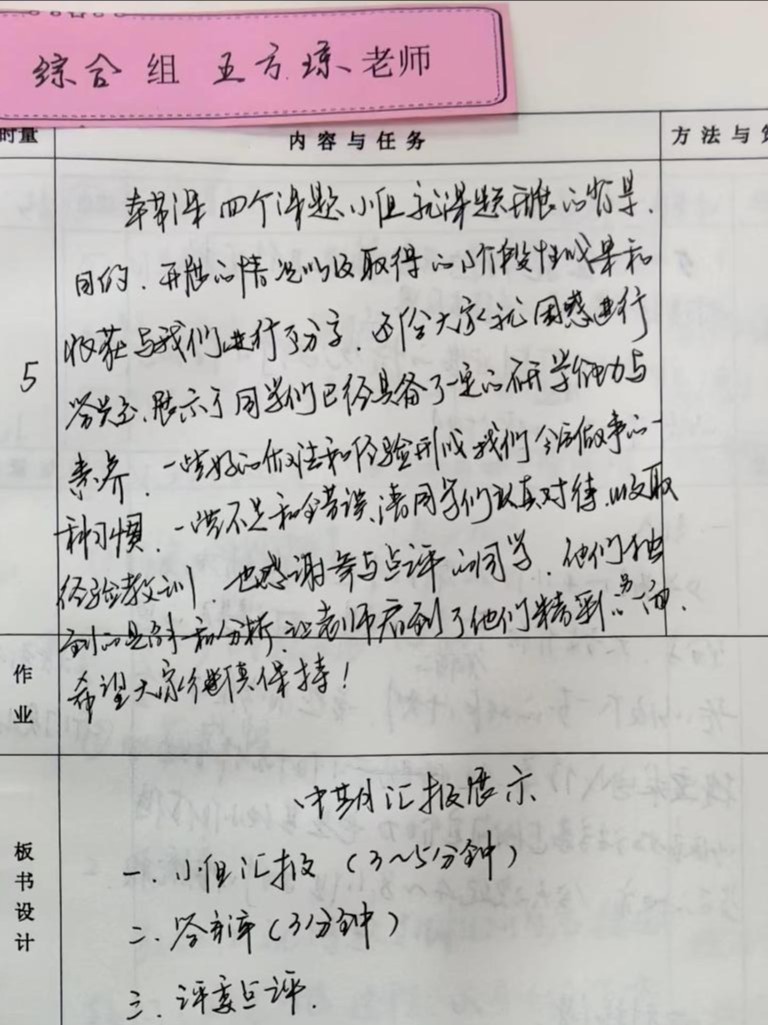 综合组 五方琼老师
时量 内容与任务 方法与
本节课四个课题小组就课题开展的背景、
目的、开展的情况以及取得的阶段性成果和
收获与我们进行了分享,还给大家就困惑进行
答疑,展示了同学们已经具备了一定的研学能力与
5
素养,一些好的做法和经验形成我们今后做事的一
种习惯,一些不足和错误,请同学们认真对待,吸取
经验教训,也感谢参与点评的同学,他们独
到的见解和分析,让老师看到了他们精彩的另一面,
希望大家继续保持!
作业
中期汇报展示
板书设计
一、小组汇报(3~5分钟)
二、答辩(3分钟)
三、评委点评.